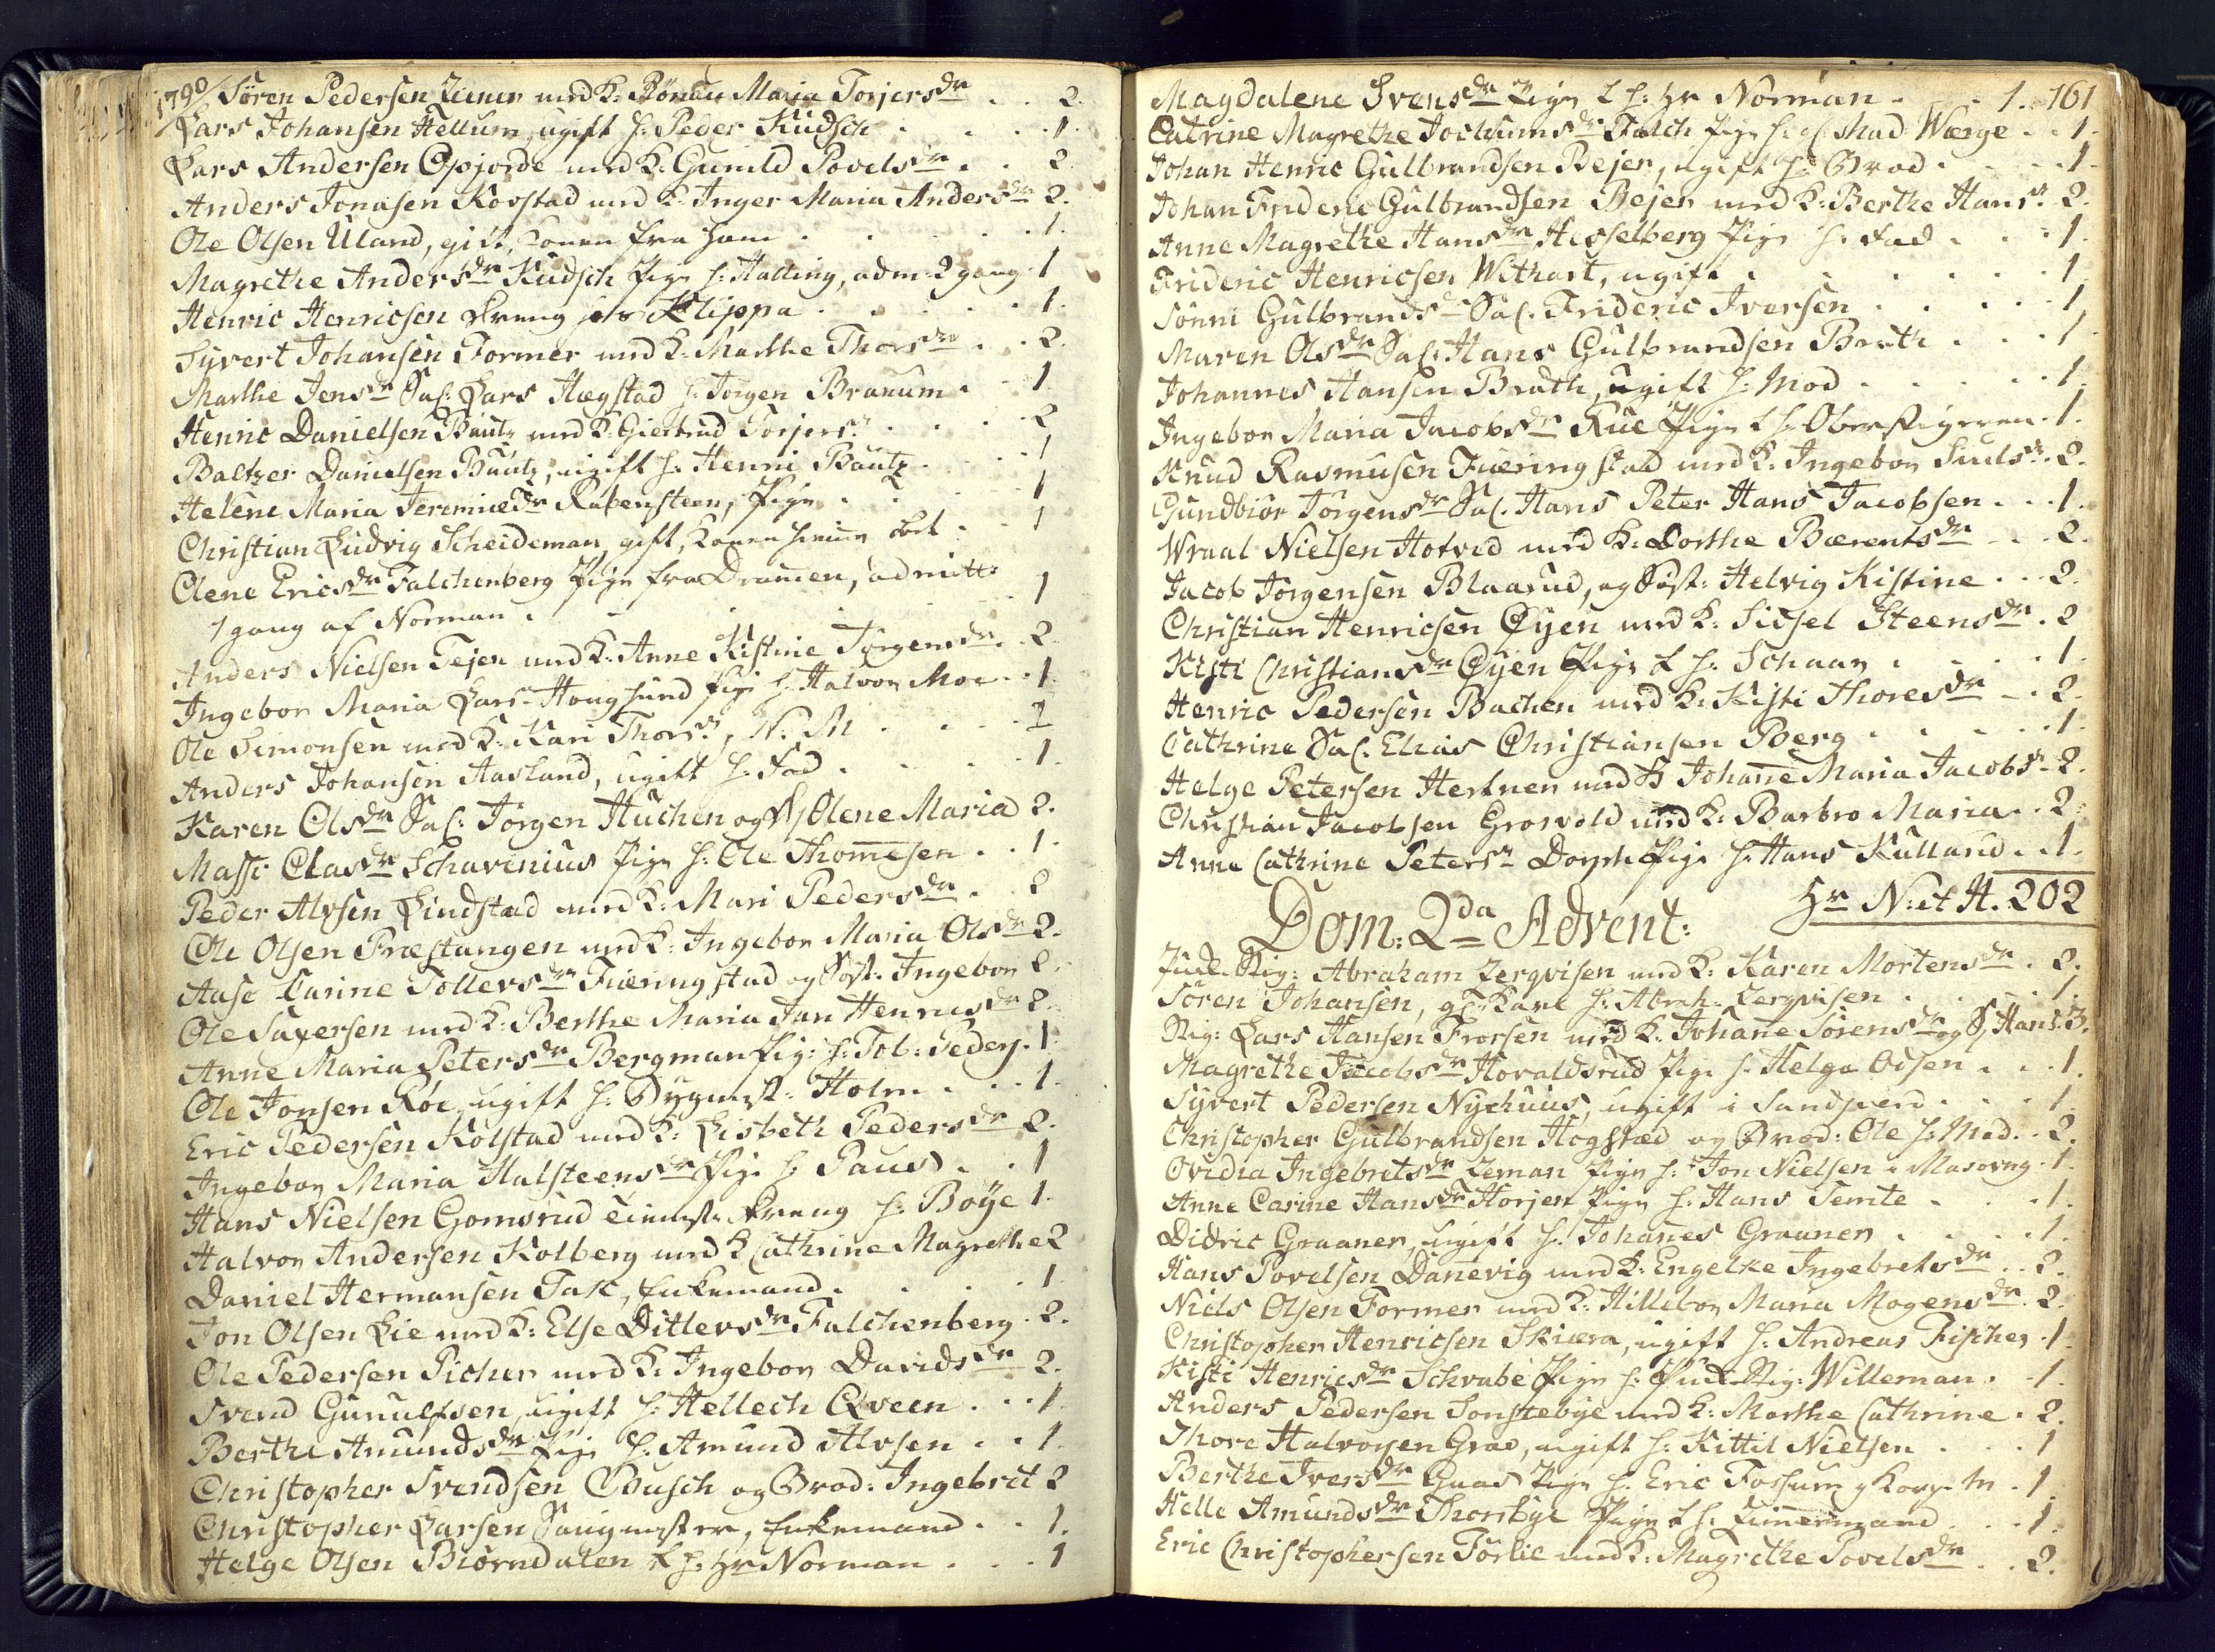 1790/ Sören Pedersen Zimer med K: Rönau Maria Torjersdr . . 2.
Lars Johansen Hellum, ugift h: Peder Kudsch . . . 1.
Lars Andersen Opjorde med K: Gunild Povelsdr . . 2.
Anders Jonasen Kovstad med K: Inger Maria Andersdr 2.
Ole Olsen Uland, gift, Konen fra ham . . . 1.
Magrethe Andersdr Kudsch Pige h: Halling, adm: 2 gang 1
Henric Henricsen dreng hos Klippa . . . 1.
Syvert Johansen Former med K: Marthe Thorsdr . . 2.
Marthe Jensdr Sal: Lars Hægstad h: Jörgen Branum . 1
Henric Danielsen Bautz med K: Giertrud Torjersdr . . 2
Baltzer Danielsen Bautz, ugift h: Henric Bautz . . 1
Helene Maria Jeremiædr Rabensteen, Pige . . . 1
Christian Ludvig Scheideman, gift, Konen . . 1
Olene Ericsdr Falchenberg Pige fra Dramen, admitt:
1 gang af Norman . . . 1
Anders Nielsen Tejen med K: Anne Kistine Jörgensdr . 2.
Ingebor Maria Lars Hougsund Pige h: Halvor Moe . . 1.
Ole Simonsen med K: Kari Thorsdr, N. M . . . 2
Anders Johansen Aasland, ugift h: Fad . . . 1.
Karen Olsdr Sal: Jörgen Huchen og Olene Maria 2.
Massi Clasdr Schavenius Pige h: Ole Thomesen . . 1.
Peder Alvsen Lindstad med K: Mari Pedersdr . . 2
Ole Olsen Præstangen med K: Ingebor Maria Olsdr 2.
Aase Carine Tollevsdr Fiæringstad og Söst: Ingebor 2.
Ole Saxersen med K: Berthe Maria Jan Henricsdr 2.
Anne Maria Petersdr Bergman Pig: h: Tob: Peders. 1
Ole Jonsen Röe, ugift h: Bygmest: Holm . . . 1.
Eric Pedersen Kolstad med K: Lisbeth Pedersdr 2.
Ingebor Maria Halsteensdr Pige h: Paus . . 1
Hans Nielsen Gomsrud dreng h: Böye 1.
Halvor Andersen Kolberg med K Cathrine Magrethe 2
Daniel Hermansen Fask, Enkemand . . . 1.
Jon Olsen Lie med K: Else Ditlevsdr Falchenberg . 2.
Ole Pedersen Picher med K: Ingebor Davidsdr 2.
Svend Gunulfsen, ugift h: Hellech Qveen . . . 1.
Berthe Amundsdr Pige h: Amund Alvsen . . 1.
Christopher Svendsen Busch og Brod: Ingebrit 2
Christopher Larsen Saugmester, Enkemand . . 1.
Helge Olsen Biörndalen t h: Hr Norman . . . 1
Magdalene Svensdr Pige t h: Hr Norman . . . 1. 161
Catrine Magrethe Jochumsdr Falch Pige h: Mad: Wærge . . 1.
Johan Henric Gulbrandsen Bejer, ugift h: Brod . . . 1.
Johan Frideric Gulbrandsen Bejer med K: Berthe Hansdr 2.
Anne Magrethe Hansdr Hesselberg Pige h: Fad . . 1.
Frideric Henricsen Withart, ugift . . . 1.
Sönni Gulbrandsdr Sal: Frideric Iversen . . . 1
Maren Olsdr Sal: Hans Gulbrandsen Brath . . 1
Johannes Hansen Brath, ugift h: Mod . . . 1.
Ingebor Maria Jacobsdr Rue Pige t h: Oberstigeren . 1.
Knud Rasmusen Fiæringstad med K: Ingebor Juelsdr . 2.
Gundbiör Jörgensdr Sal: Hans Peter Hans Jacobsen . . 1.
Wraal Nielsen Hotvid med K: Dorthe Bærentsdr . . 2.
Jacob Jörgensen Blaarud, og Söst: Helvig Kistine . . 2.
Christian Henricsen Öyen med K: Sidsel Steensdr . 2
Kisti Christiansdr Öyen Pige t h: Schaar . . . 1.
Henric Pedersen Bachen med K: Kisti Thoresdr . . 2.
Cathrine Sal: Elias Christiansen Berg . . . 1.
Helge Petersen Hertner med K Johanne Maria Jacobsdr 2.
Christian Jacobsen Growold med K: Barbro Maria . . 2.
Anne Cathrine Petersdr Dorph Pige h: Hans Kulland . . 1.
Dom: 2da Advent: Hr N: et H. 202
Puck-Stig: Abraham Zergvisen med K: Karen Mortensdr . 2.
Sören Johansen, gl: Karl h: Abrah: Zergvisen . . . 1.
Stig: Lars Hansen Frorsen med K: Johanne Sörensdr og S, Hans . 3.
Magrethe Jacobsdr Hovaldsrud Pige h: Helge Odsen . . . 1.
Syvert Pedersen Nyehuus, ugift i Sandsverd . . . 1.
Christopher Gulbrandsen Hogstad og Brod: Ole h: Mod . . 2.
Ovidia Ingebretsdr Zeman Pige h: Jon Nielsen i Masovng . 1.
Anne Carine Hansdr Horjen Pige h: Hans Temte . . 1.
Didric Graaner, ugift h: Johannes Graaner . . . 1.
Hans Povelsen Danevig med K: Engelke Ingebretsdr . . 2.
Niels Olsen Former med K: Hillebor Maria Mogensdr . 2.
Christopher Henricsen Skiæra, ugift h: Andreas Fischer . 1
Kisti Henricsdr Schvabe Pige h: Puck-Stig: Willeman . 1.
Anders Pedersen Sonstebye med K: Marthe Cathrine . 2.
Thore Halvorsen Grae, ugift h: Kittil Nielsen . . . 1
Berthe Iversdr Gaas Pige h: Eric Fossum . 1.
Helle Amundsdr Thorsbye Pige t h: Zimermand . . . 1.
Eric Christophersen Törlie med K: Magrethe Povelsdr . . 2.